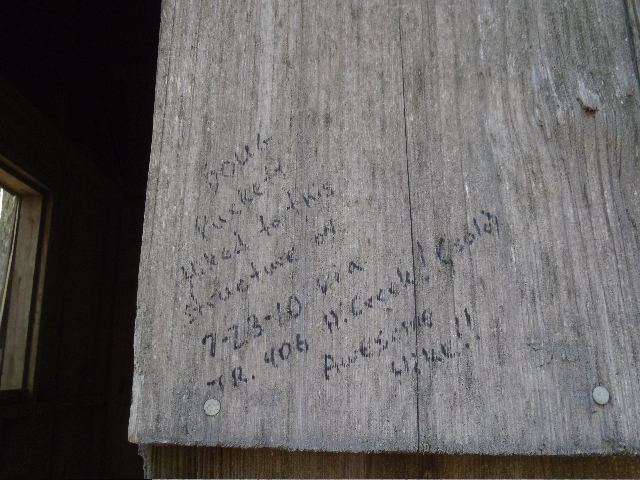 DOUG
Puckett
Hiked to this
structure on
7-23-10 Via
TR. 406 H. Creek! (solo)
Awesome
Hike!!